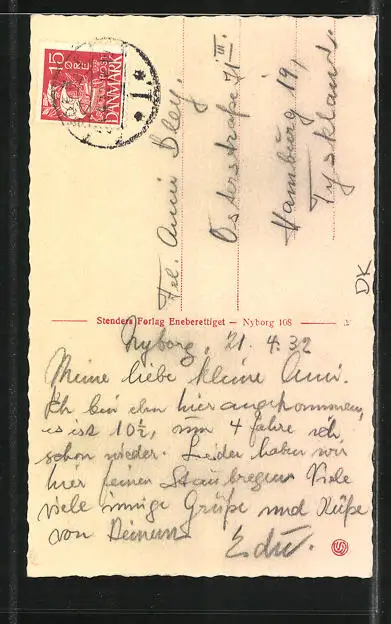 15
ØRE
POST
DANMARK
Frl. Anni Bley.
Osterstraße 71 III.
Hamburg 19,
Tyskland
DK
Stenders Forlag Eneberettiget — Nyborg 108
Nyborg, 21. 4. 32
Meine liebe kleine Anni.
Ich bin eben hier angekommen,
es ist 10½, um 4 fahre ich
schon wieder. Leider haben wir
hier feinen Staubregen. Viele
viele innige Grüße und Küße
von Deinem
Edu.